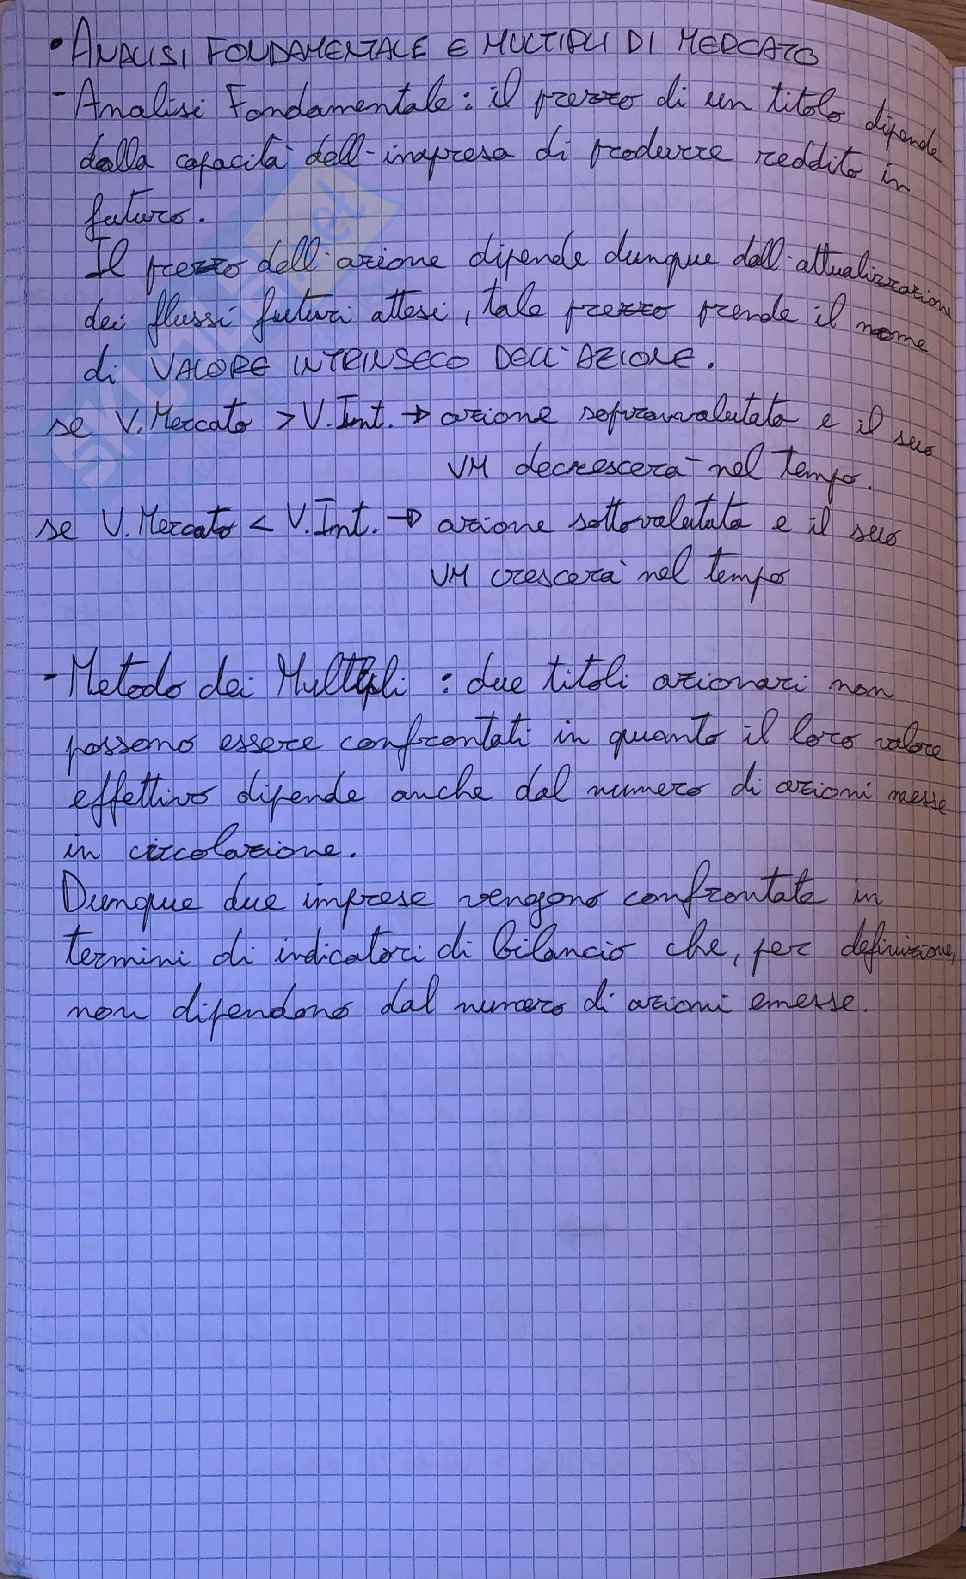 • ANALISI FONDAMENTALE E MULTIPLI DI MERCATO
- Analisi Fondamentale: il prezzo di un titolo dipende
dalla capacità dell'impresa di produrre reddito in
futuro.
Il prezzo dell'azione dipende dunque dall'attualizzazione
dei flussi futuri attesi, tale prezzo prende il nome
di VALORE INTRINSECO DELL'AZIONE.
se V. Mercato > V. Int. → azione sopravvalutata e il suo
VM decrescerà nel tempo.
se V. Mercato < V. Int. → azione sottovalutata e il suo
VM crescerà nel tempo
- Metodo dei Multipli : due titoli azionari non
possono essere confrontati in quanto il loro valore
effettivo dipende anche dal numero di azioni messe
in circolazione.
Dunque due imprese vengono confrontate in
termini di indicatori di bilancio che, per definizione,
non dipendono dal numero di azioni emesse.